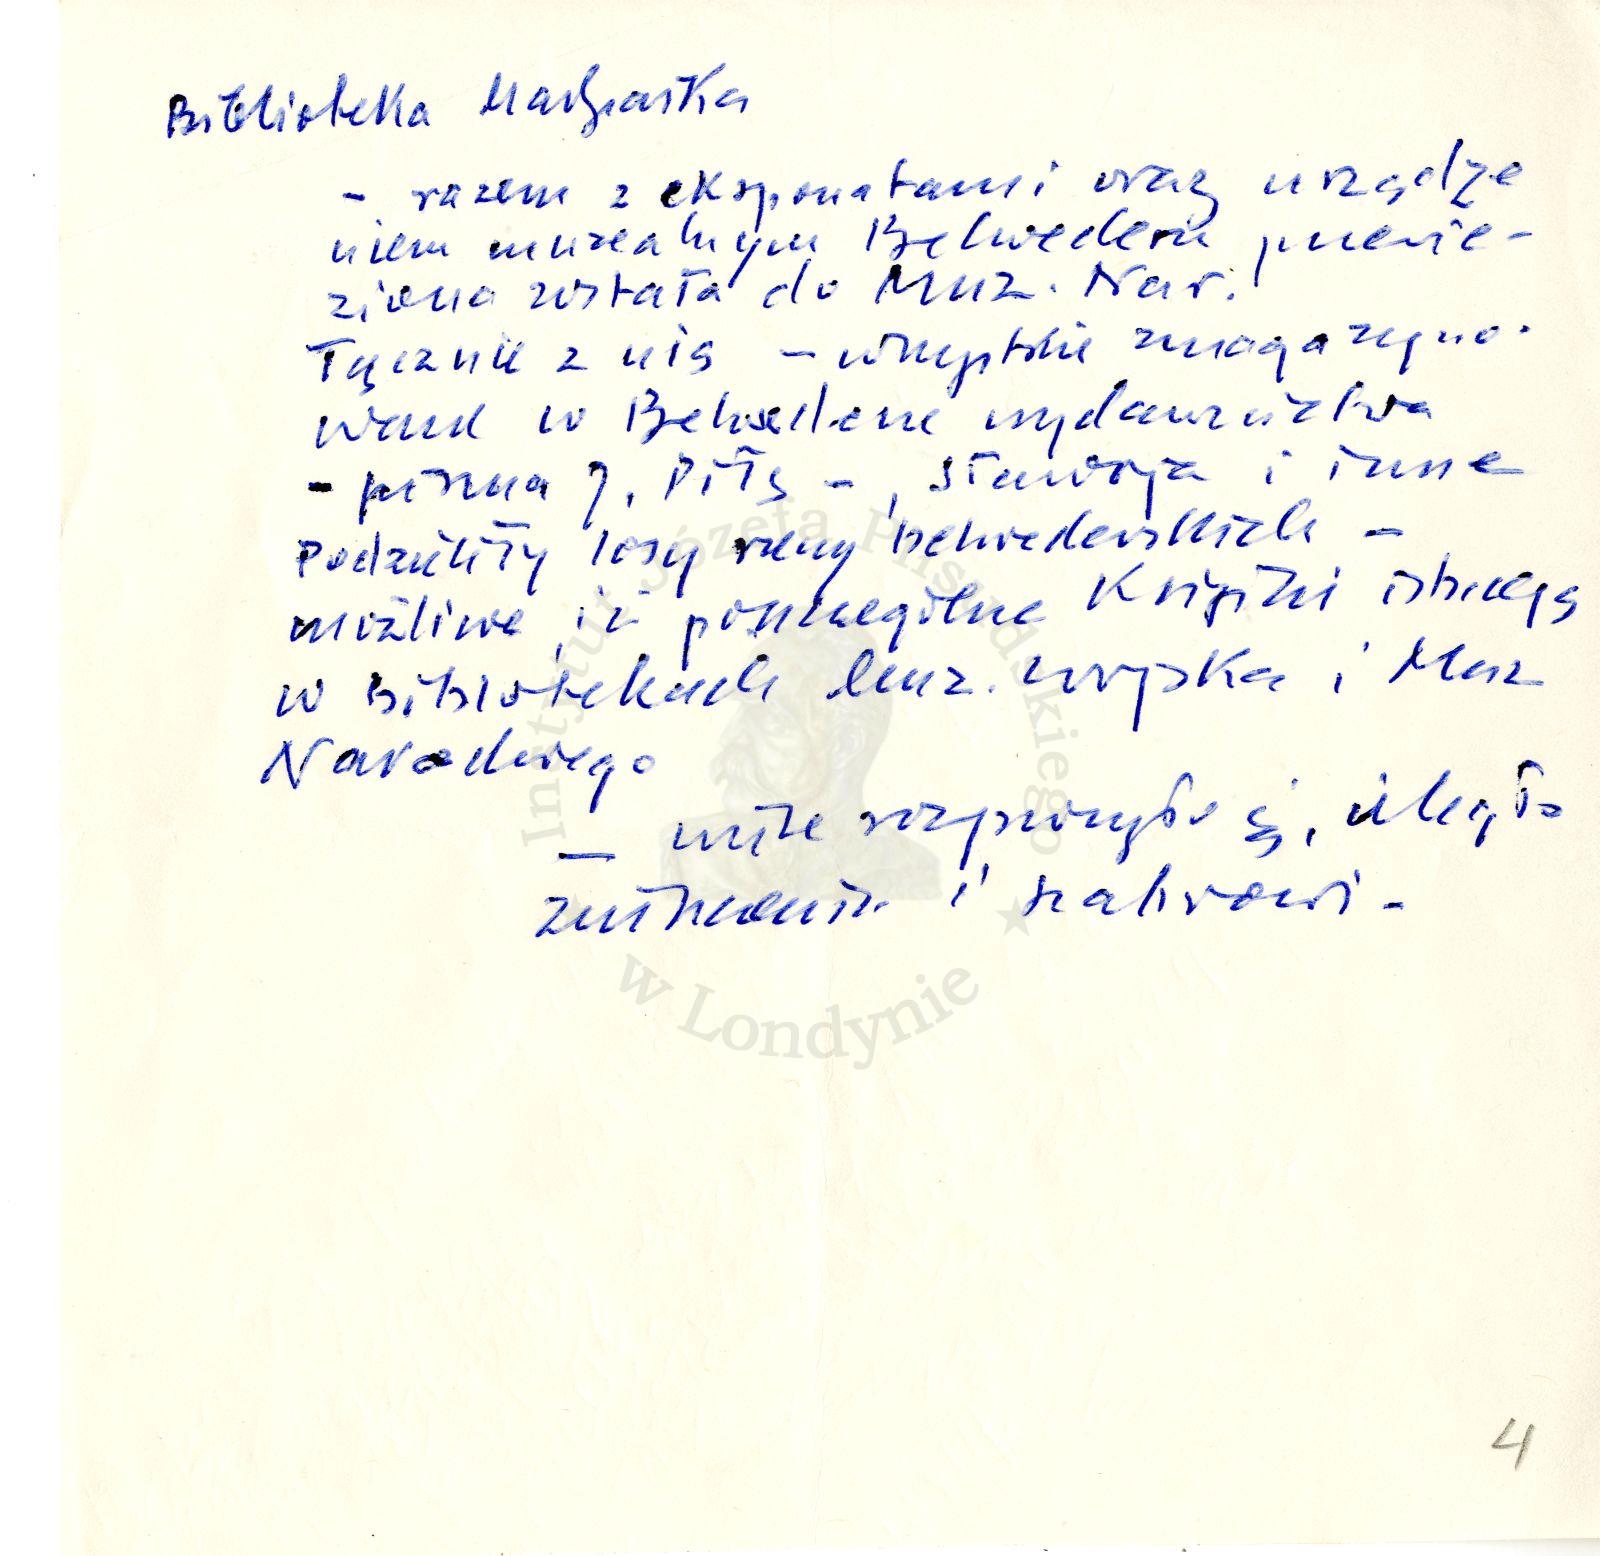 Biblioteka Marszałka
- razem z eksponatami oraz urządze
niem muzealnym Belwederu przewie-
ziona została do Muz. Nar.
Łącznie z nią - wszystkie zmagazyno-
wane w Belwederze wydawnictwa
- pisma J. Piłs -, Sławoja i inne
Podzieliły losy rzeczy belwederskich -
możliwe, iż poszczególne Książki istnieją
w Bibliotekach Muz. Wojska i Muz
Narodowego
- inne się, uległo
zniszczeniu i szabrowi -
Instytut Józefa Piłsudskiego
w Londynie
4